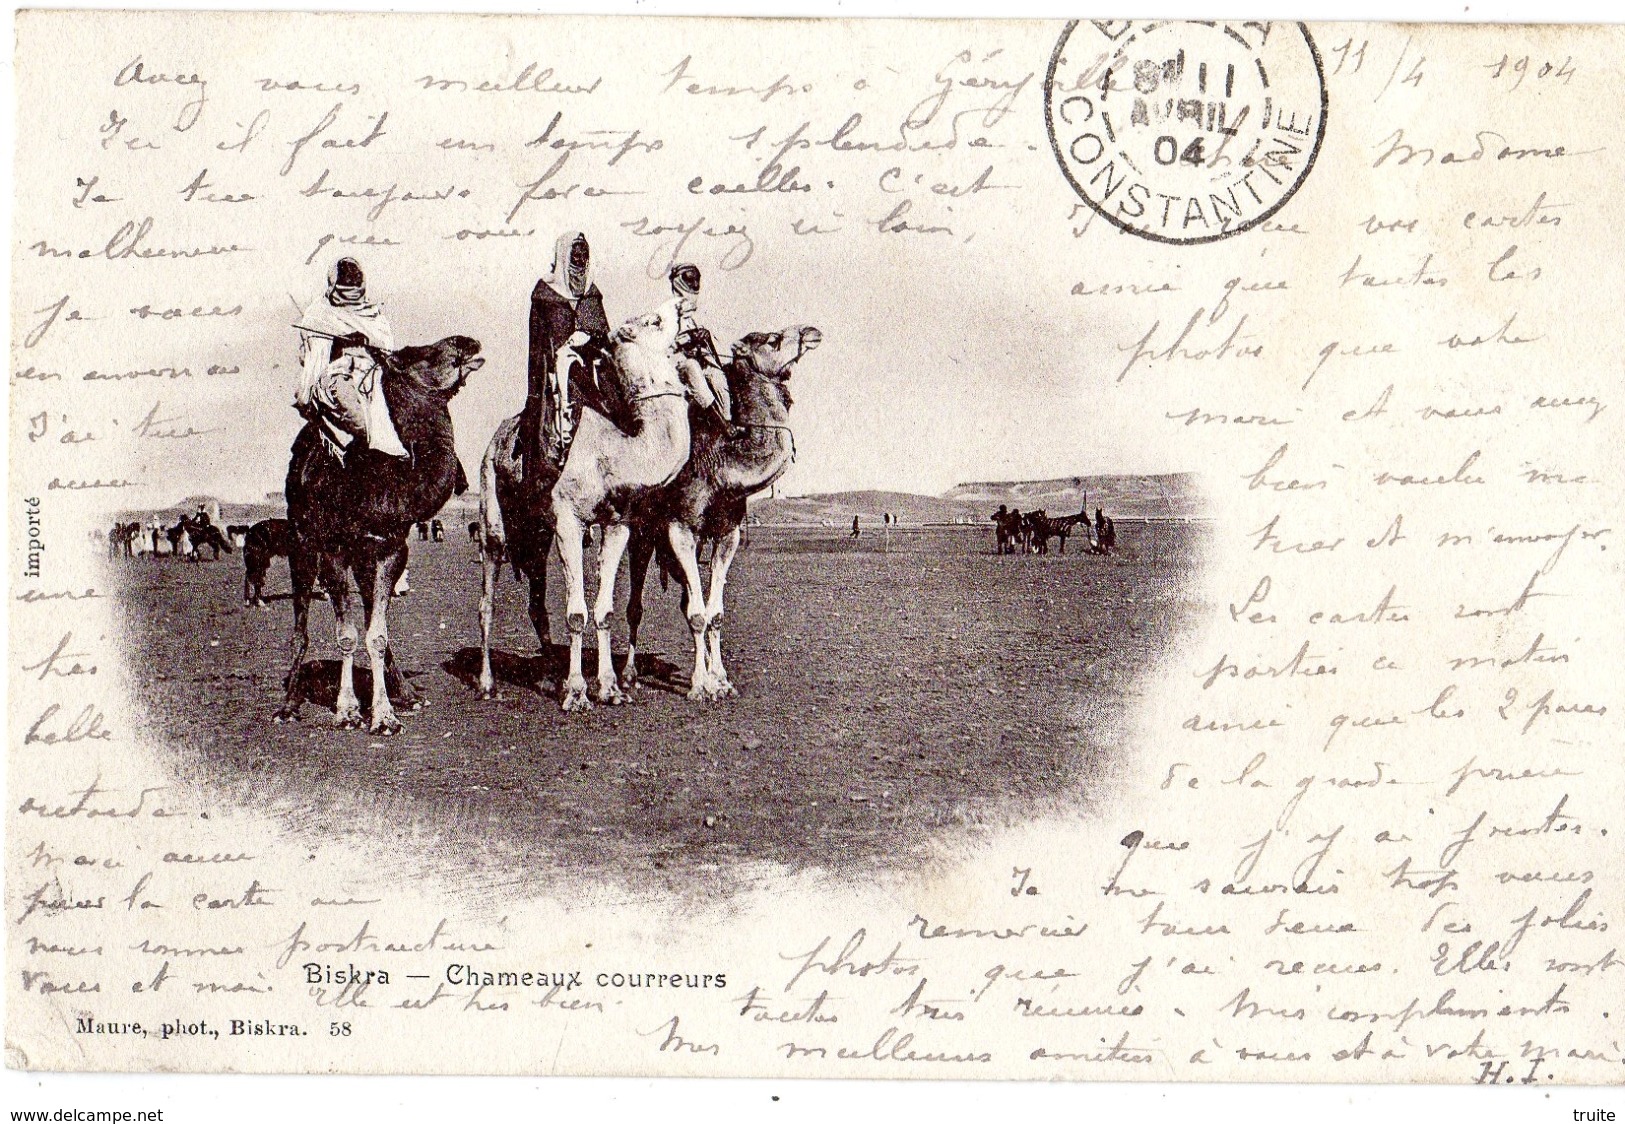 11/4 1904
Avez vous meilleur temps à Géryville
Ici il fait un temps splendide.
Je tue toujours force cailles. C'est
malheureux que vous soyiez si loin,
je vous
en enverrais.
J'ai tué
aussi
une
très
belle
outarde.
Merci aussi
pour la carte où
nous sommes portraicturé
vous et moi. Elle est très bien.
Chère Madame
J'ai reçu vos cartes
ainsi que toutes les
photos que votre
mari et vous avez
bien voulu me
tirer et m'envoyer.
Les cartes sont
parties ce matin
ainsi que les 2 poses
de la grande prière
que j'y ai jointes.
Je ne saurais trop vous
remercier tous deux des jolies
photos que j'ai reçues. Elles sont
toutes très réussies. Mes compliments.
Mes meilleures amitiés à vous et à votre mari.
H. I.
8 11
AVRIL
04
CONSTANTINE
importé
Biskra — Chameaux courreurs
Maure, phot., Biskra. 58
www.delcampe.net
truite